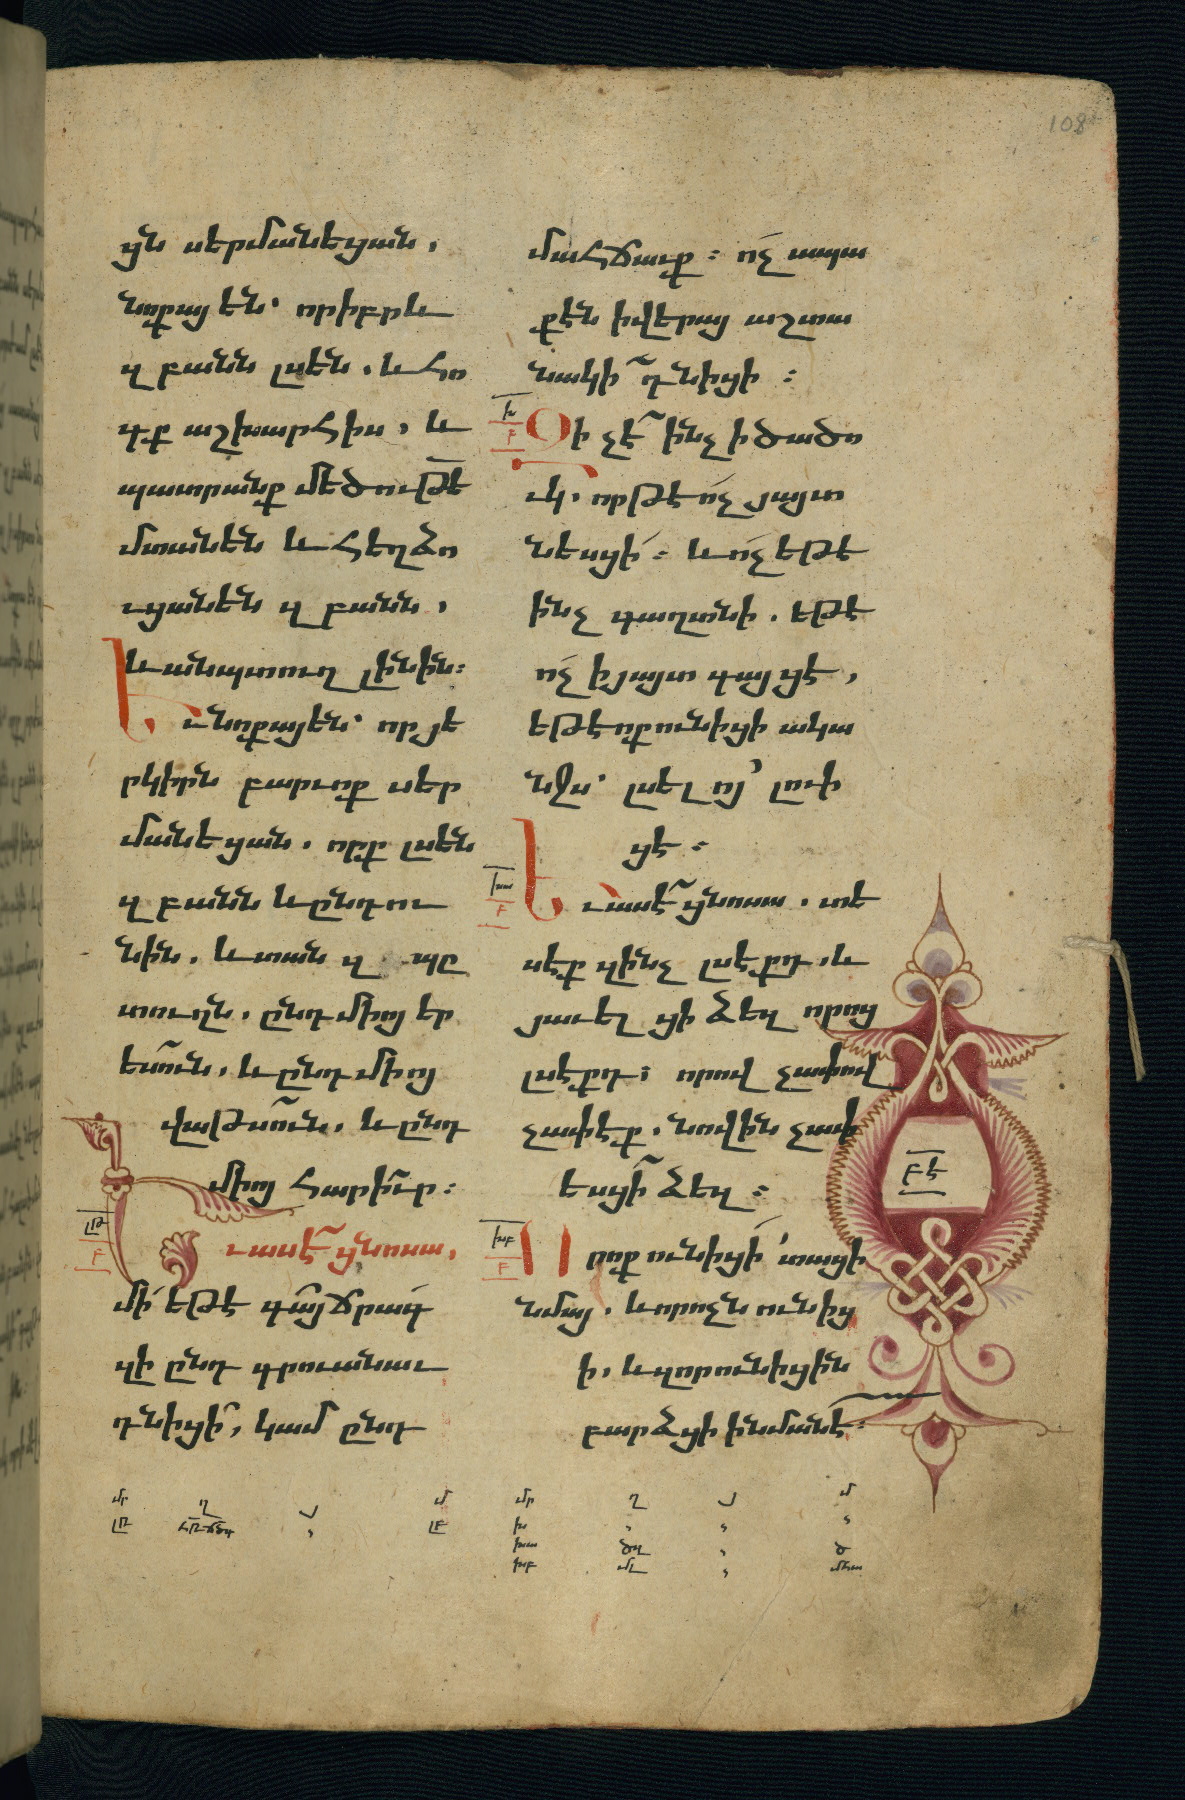 108
յն սերմանեցան,
նոքայ են՝ որ իբրև
զբանն լսեն. և հո
գք աշխարհիս, և
պատրանք մեծութե
մտանեն և հեղձո
ւցանեն զբանն,
և անպտուղ լինին։
Եւ նոքայ են՝ որ յե
րկիրն բարւոք սեր
մանեցան. որք լսեն
զբանն և ընդու
նին. և տան զ պը
տուղն. ընդ միոյ եր
եսուն, և ընդ միոյ
վաթսուն. և ընդ
միոյ հարիւր։
լթ
բ
Եւ ասէ ցնոսա,
մի՛ եթէ գայ ճրագ
զի ընդ գրուանաւ
դնիցի, կամ ընդ
մահճաւք։ ո՛չ ապա
քէն ի վերայ աշտա
նակի դնիցի։
խ
բ
Զի չէ ինչ ի ծածո
ւկ. որ թէ ո՛չ յայտ
նեսցի։ և ո՛չ եթէ
ինչ գաղտնի. եթէ
ո՛չ ի յայտ գայցէ,
եթէ ոք ունիցի ակա
նջս՝ լսել ոյ՛ լուի
ցէ։
խա
բ
Եւ ասէ ցնոսա. տե
սէք զինչ լսէքդ. և
յաւել ցի ձեզ որոյ
լսէքդ։ որով չափով
չափէք. նովին չափ
եսցի ձեզ։
խբ
բ
Որ ոք ունիցի՛ տացի
նմայ. և որ ոչն ունից
ի, և զոր ունիցին
բարձցի ի նմանէ։